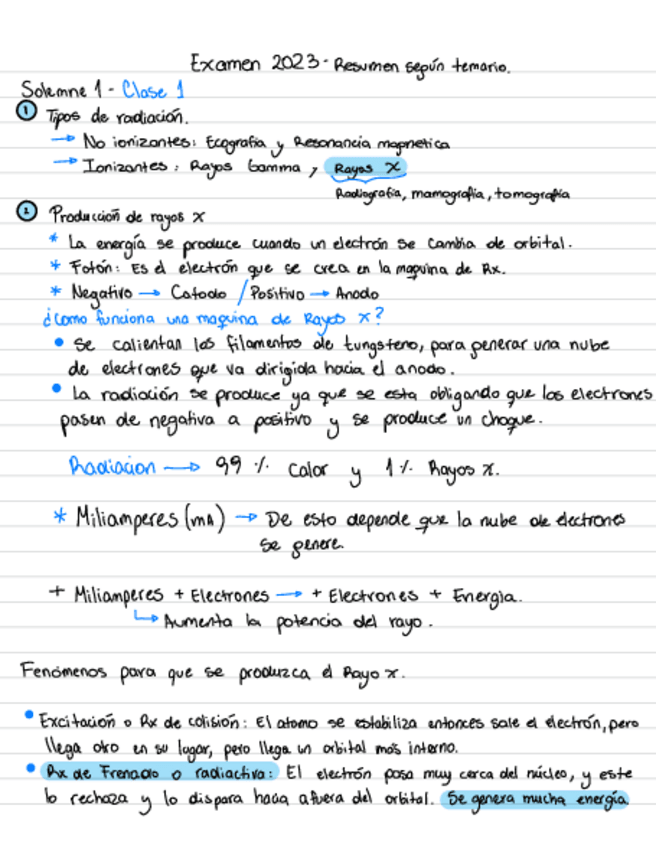 Examen 2023 - Resumen según temario.
Solemne 1 - Clase 1
① Tipos de radiación.
→ No ionizantes: Ecografía y Resonancia magnetica
→ Ionizantes: Rayos Gamma, Rayos X
Radiografía, mamografía, tomografía
② Producción de rayos x
* La energía se produce cuando un electrón se cambia de orbital.
* Fotón: Es el electrón que se crea en la maquina de Rx.
* Negativo → Catodo / Positivo → Anodo
¿Como funciona una maquina de Rayos x?
• Se calientan los filamentos de tungsteno, para generar una nube
de electrones que va dirigida hacia el anodo.
• La radiación se produce ya que se esta obligando que los electrones
pasen de negativa a positivo y se produce un choque.
Radiacion → 99 % Calor y 1% Rayos x.
* Miliamperes (mA) → De esto depende que la nube de electrones
se genere.
+ Miliamperes + Electrones → + Electrones + Energia.
↳ Aumenta la potencia del rayo.
Fenómenos para que se produzca el Rayo x.
• Excitación o Rx de colisión: El atomo se estabiliza entonces sale el electrón, pero
llega otro en su lugar, pero llega un orbital más interno.
• Rx de Frenado o radiactiva: El electrón pasa muy cerca del núcleo, y este
lo rechaza y lo dispara hacia afuera del orbital. Se genera mucha energía